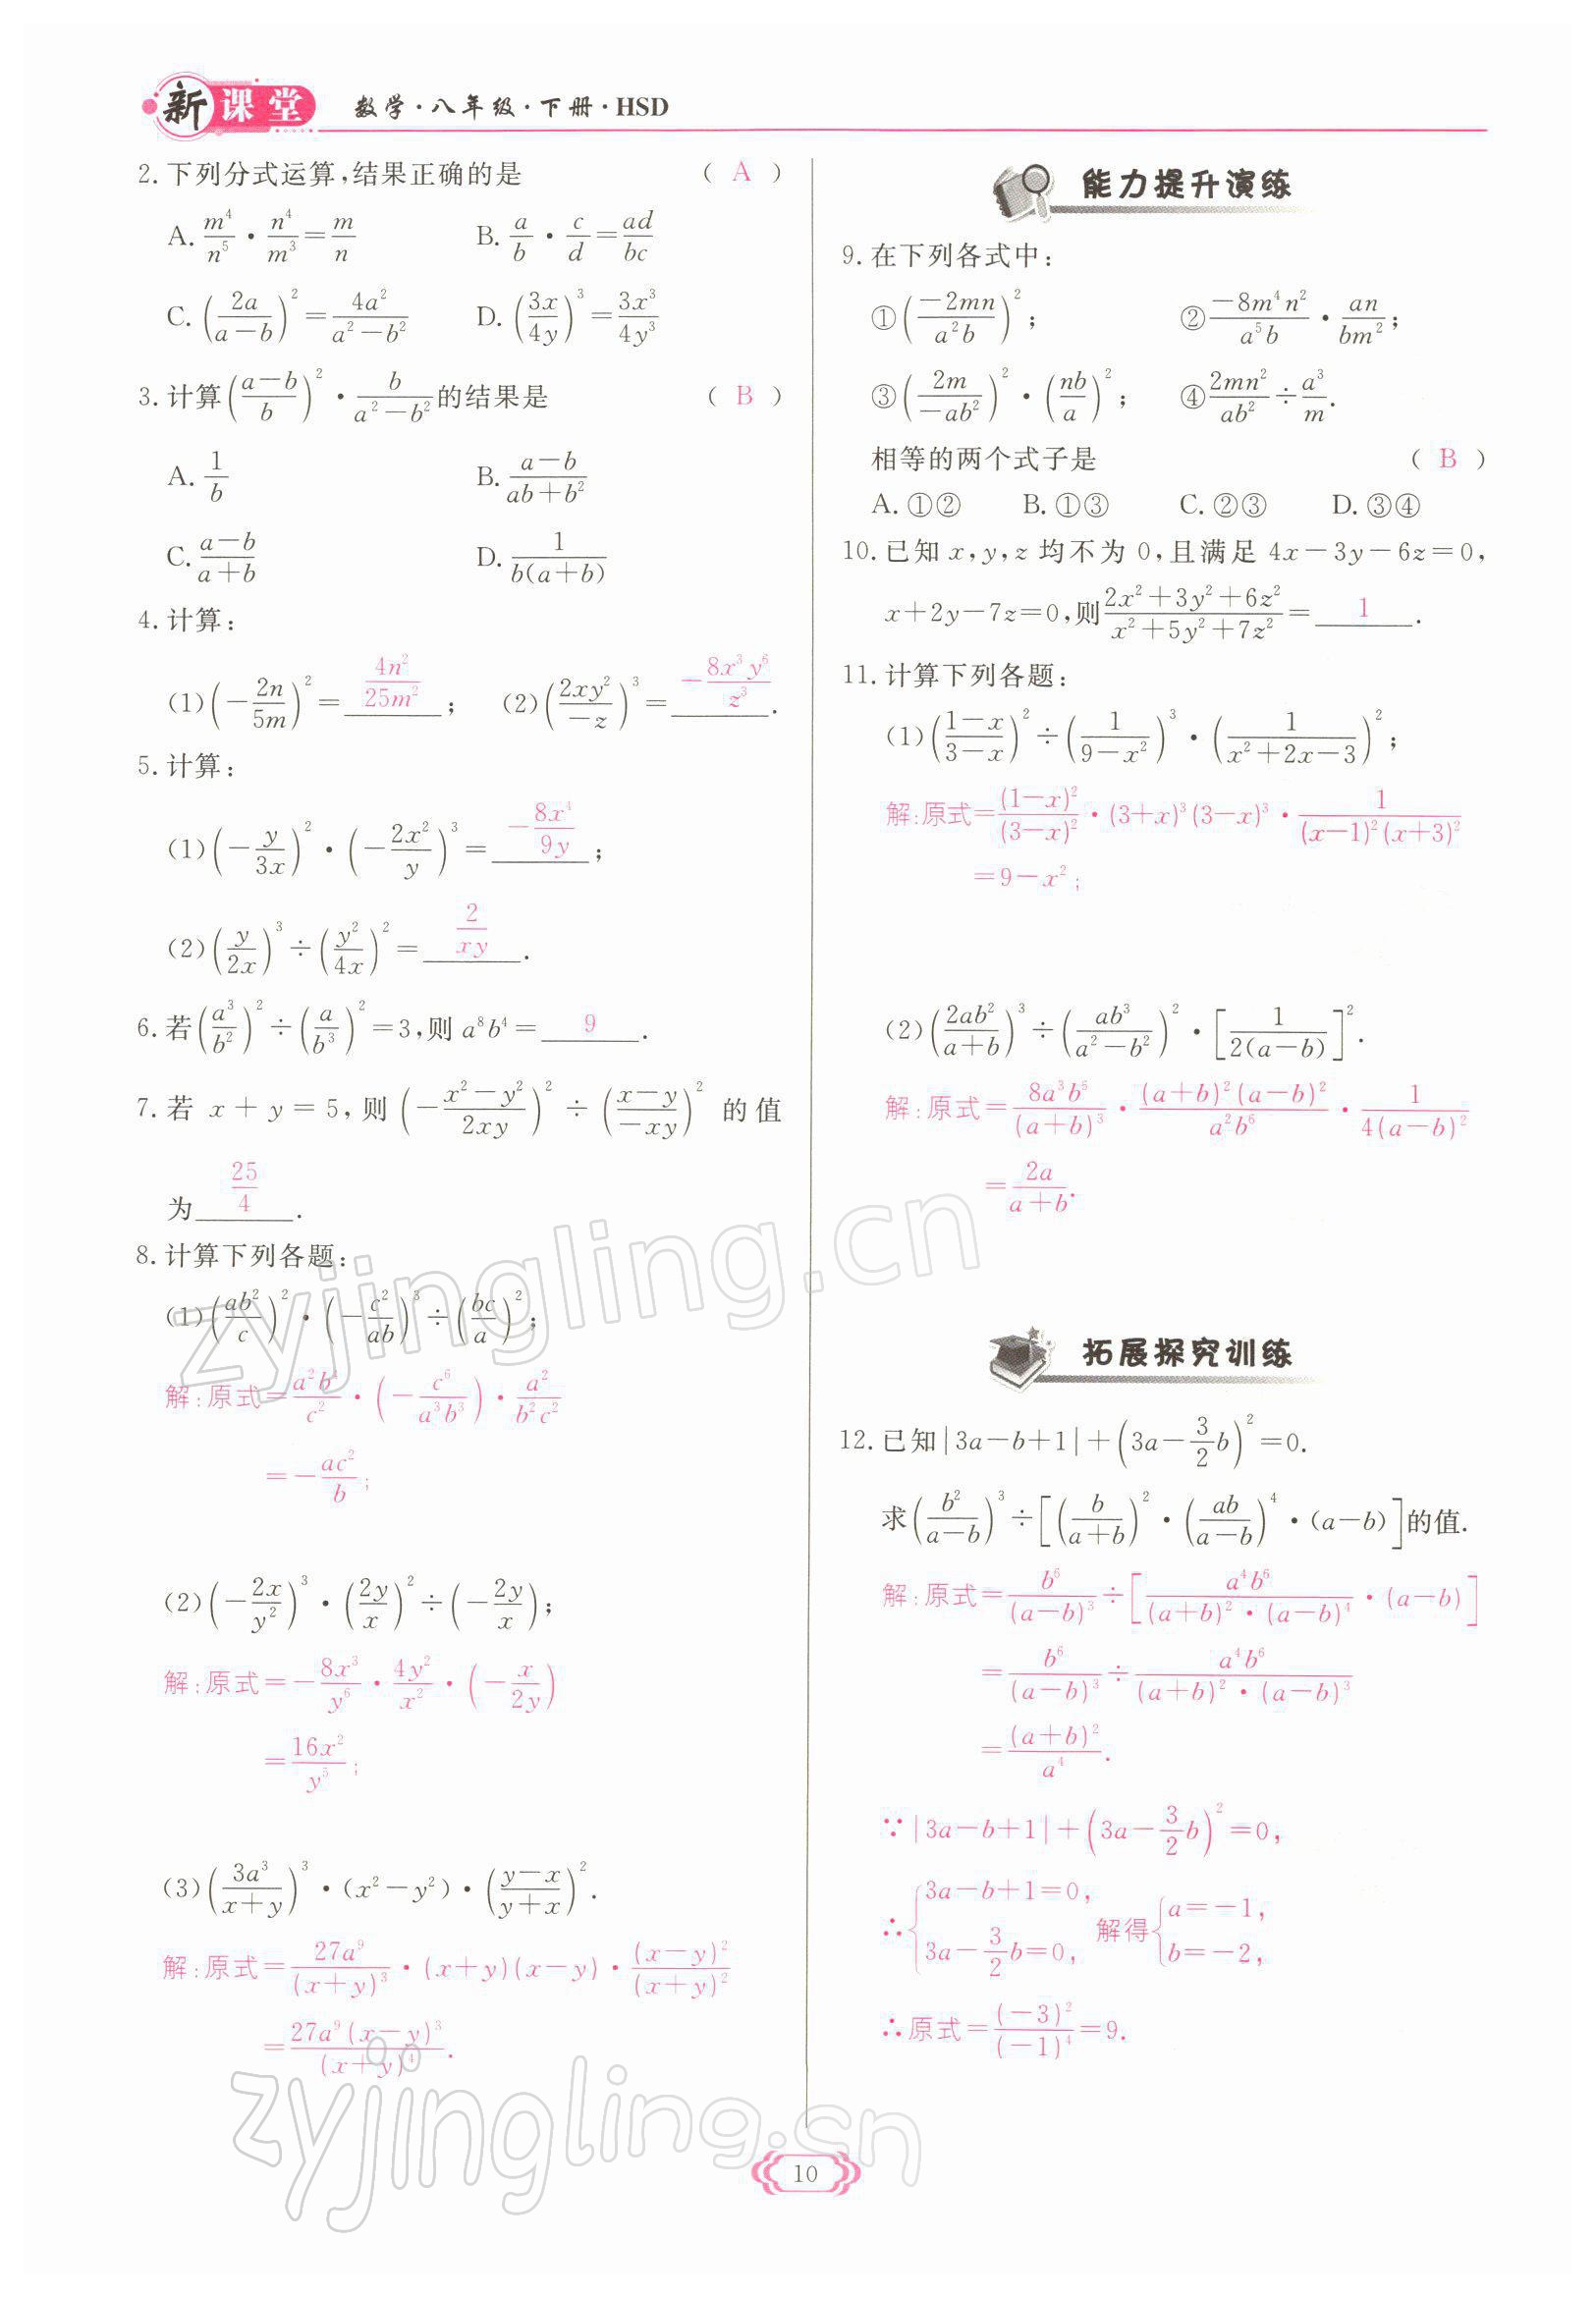 新课堂 数学·八年级·下册·HSD
2. 下列分式运算,结果正确的是 ( A )
A. m⁴/n⁵ · n⁴/m³ = m/n B. a/b · c/d = ad/bc
C. (2a/(a-b))² = 4a²/(a²-b²) D. (3x/4y)³ = 3x³/4y³
3. 计算((a-b)/b)² · b/(a²-b²)的结果是 ( B )
A. 1/b B. (a-b)/(ab+b²)
C. (a-b)/(a+b) D. 1/(b(a+b))
4. 计算:
(1)(-2n/5m)² = 4n²/25m² ; (2)(2xy²/-z)³ = -8x³y⁶/z³ .
5. 计算:
(1)(-y/3x)² · (-2x²/y)³ = -8x⁴/9y ;
(2)(y/2x)³ ÷ (y²/4x)² = 2/xy .
6. 若(a³/b²)² ÷ (a/b³)² = 3,则 a⁸b⁴ = 9 .
7. 若 x+y=5,则 (-(x²-y²)/2xy)² ÷ ((x-y)/-xy)² 的值
为 25/4 .
8. 计算下列各题:
(1)(ab²/c)² · (-c²/ab)³ ÷ (bc/a)²;
解:原式= a²b⁴/c² · (-c⁶/a³b³) · a²/b²c²
= -ac²/b;
(2)(-2x/y²)³ · (2y/x)² ÷ (-2y/x);
解:原式= -8x³/y⁶ · 4y²/x² · (-x/2y)
= 16x²/y⁵;
(3)(3a³/(x+y))³ · (x²-y²) · ((y-x)/(y+x))².
解:原式= 27a⁹/(x+y)³ · (x+y)(x-y) · (x-y)²/(x+y)²
= 27a⁹(x-y)³/(x+y)⁴.
能力提升演练
9. 在下列各式中:
①(-2mn/a²b)²; ②-8m⁴n²/a⁵b · an/bm²;
③(2m/-ab²)² · (nb/a)²; ④2mn²/ab² ÷ a³/m.
相等的两个式子是 ( B )
A. ①② B. ①③ C. ②③ D. ③④
10. 已知 x,y,z 均不为 0,且满足 4x-3y-6z=0,
x+2y-7z=0,则(2x²+3y²+6z²)/(x²+5y²+7z²) = 1 .
11. 计算下列各题:
(1)((1-x)/(3-x))² ÷ (1/(9-x²))³ · (1/(x²+2x-3))²;
解:原式= (1-x)²/(3-x)² · (3+x)³(3-x)³ · 1/((x-1)²(x+3)²)
=9-x²;
(2)(2ab²/(a+b))³ ÷ (ab³/(a²-b²))² · [1/(2(a-b))]².
解:原式= 8a³b⁶/(a+b)³ · (a+b)²(a-b)²/a²b⁶ · 1/(4(a-b)²)
= 2a/(a+b).
拓展探究训练
12. 已知|3a-b+1|+(3a-3/2b)²=0.
求(b²/(a-b))³ ÷ [(b/(a+b))² · (ab/(a-b))⁴ · (a-b)]的值.
解:原式= b⁶/(a-b)³ ÷ [a⁴b⁶/((a+b)²·(a-b)⁴) · (a-b)]
= b⁶/(a-b)³ ÷ a⁴b⁶/((a+b)²·(a-b)³)
= (a+b)²/a⁴.
∵|3a-b+1|+(3a-3/2b)²=0,
∴{3a-b+1=0, 3a-3/2b=0, 解得{a=-1, b=-2,
∴原式= (-3)²/(-1)⁴ =9.
zyjingling.cn
zyjingling.cn
10